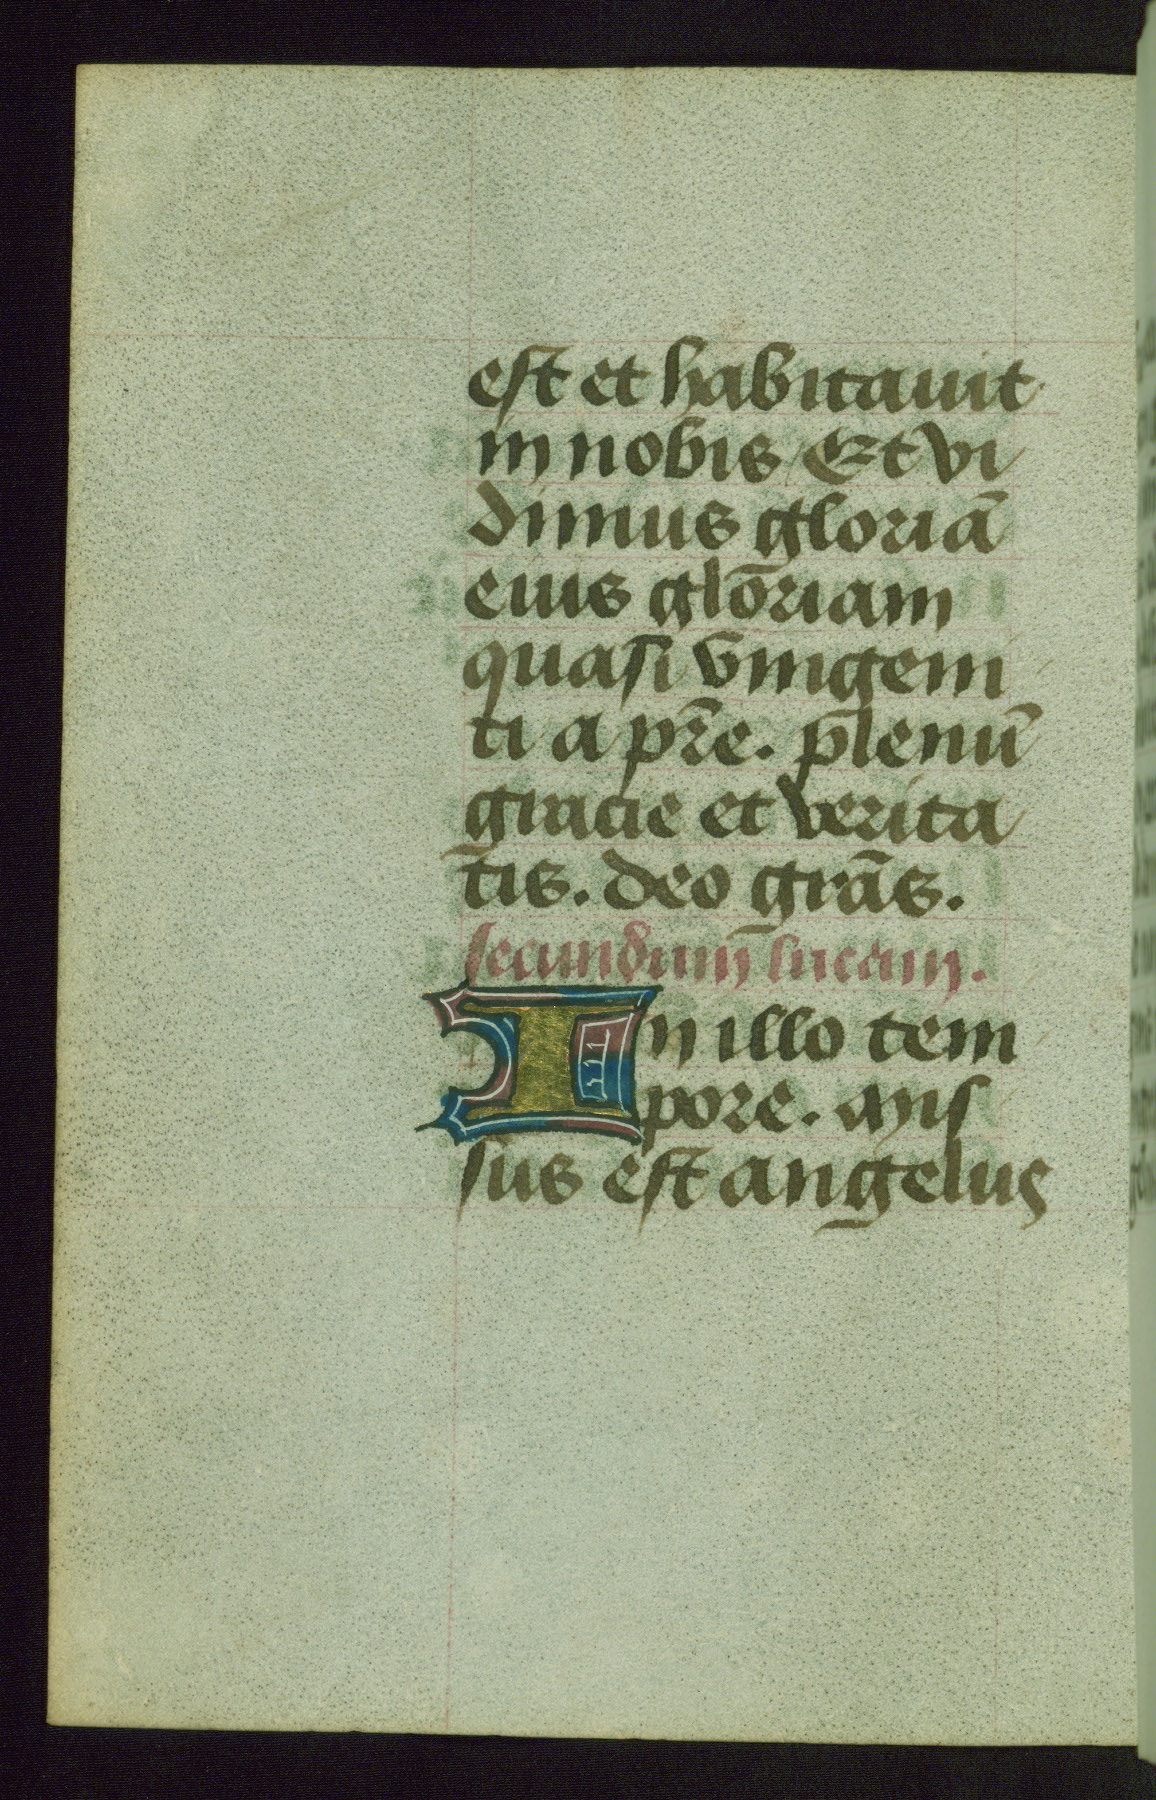 est et habitauit
in nobis Et vi
dimus gloriā
eius gloriam
quasi vnigeni
ti a pr̄e. plenū
gracie et verita
tis. deo grās.
secundum lucam.
In illo tem
pore. mis
sus est angelus